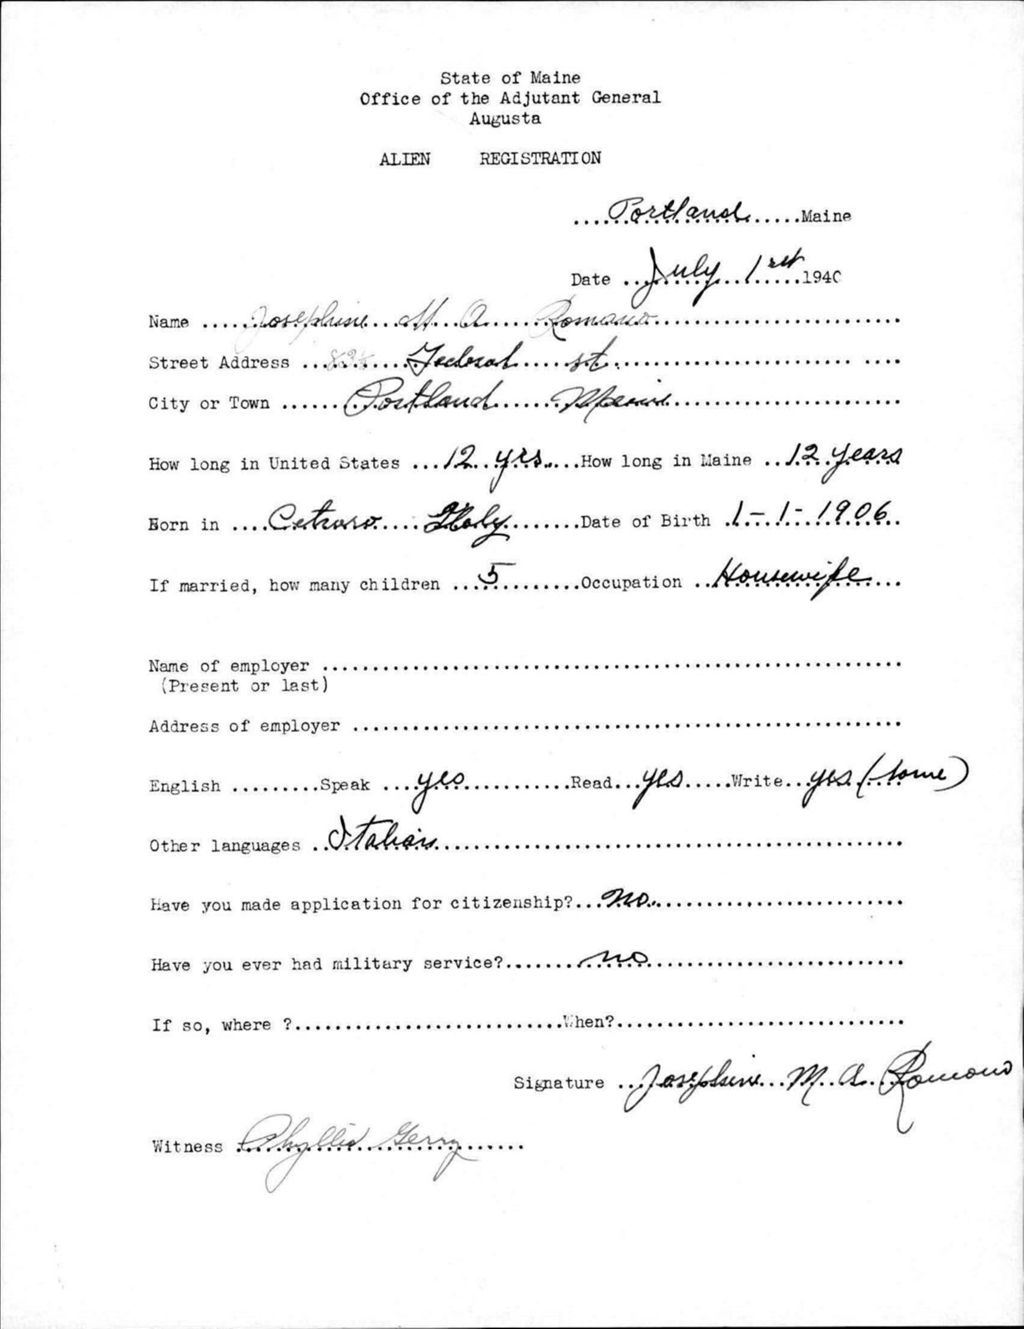 State of Maine
Office of the Adjutant General
Augusta
ALIEN REGISTRATION
....Portland......Maine
Date ..July 1st.....1940
Name .....Josephine...M..A......Romano..............................
Street Address ........Federal....st..............................
City or Town ......Portland......Maine............................
How long in United States ...12..yrs....How long in Maine ..12.years
Born in ....Cetraro.... Italy.........Date of Birth .1-.1-.1906..
If married, how many children ...5.........Occupation ..Housewife...
Name of employer ............................................................
(Present or last)
Address of employer .........................................................
English .........Speak ...yes............Read...yes.....Write...yes.(some)
Other languages ..Italian.................................................
Have you made application for citizenship?...no............................
Have you ever had military service?.......no..............................
If so, where ?...........................When?.............................
Signature ..Josephine...M..A..Romano
Witness Phyllis Gerry.......